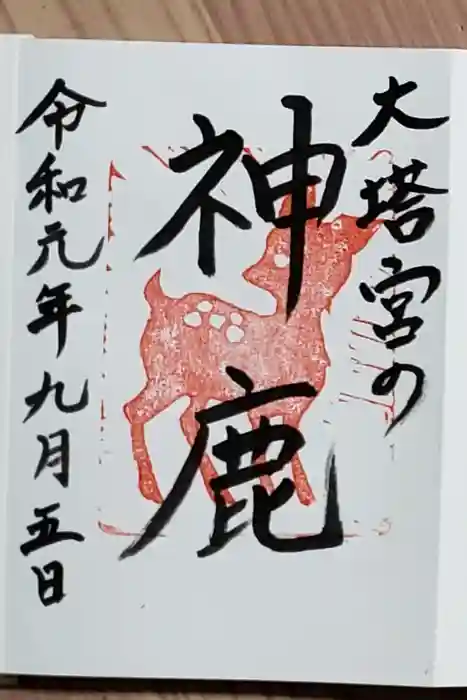 大塔宮の
神鹿
令和元年九月五日